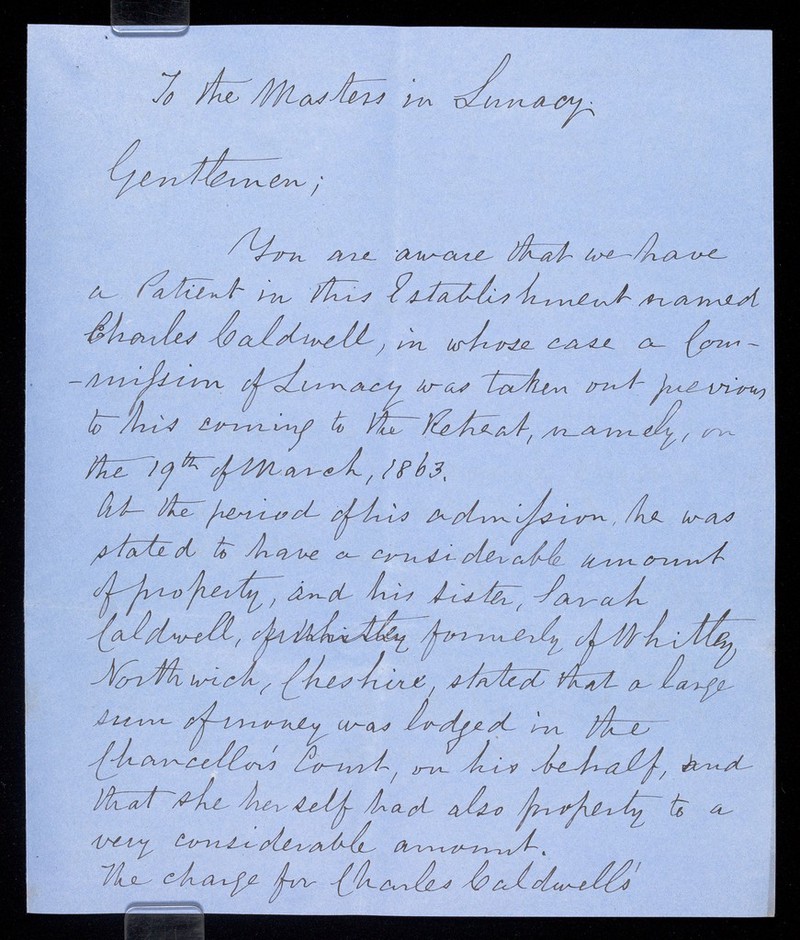 To the Masters in Lunacy.
Gentlemen;
You are aware that we have
a Patient in this Establishment named
Charles Caldwell, in whose case a Com-
-mission of Lunacy was taken out previous
to his coming to the Retreat, namely, on
the 19th of March, 1863.
At the period of his admission, he was
stated to have a considerable amount
of property, and his sister, Sarah
Caldwell, of Whitley formerly of Whitley
Northwich, Cheshire, stated that a large
sum of money was lodged in the
Chancellor's Court, on his behalf, and
that she herself had also property to a
very considerable amount.
The charge for Charles Caldwell's